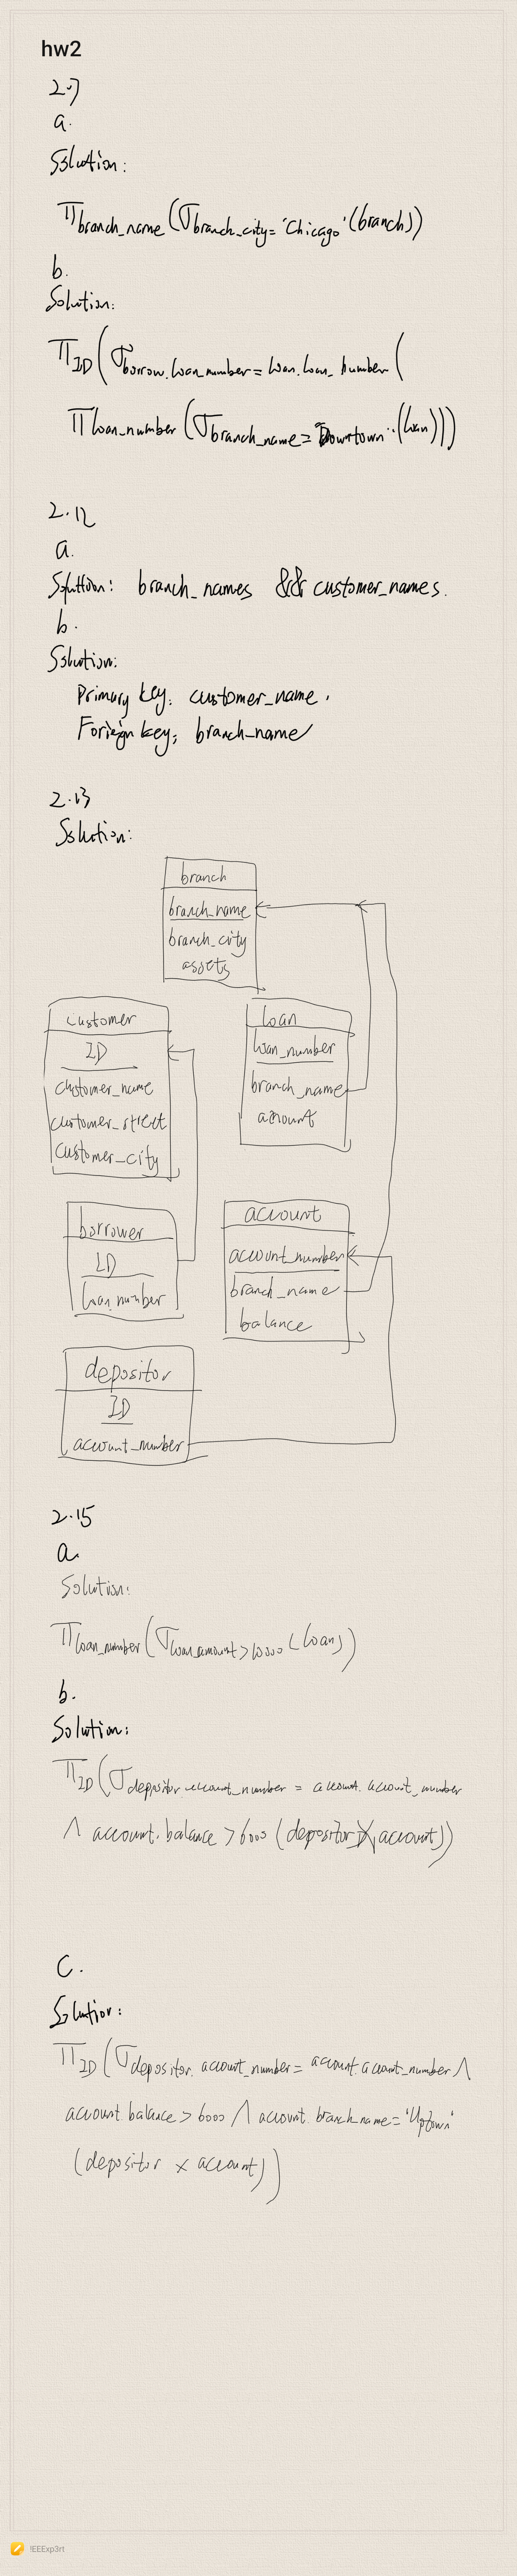 hw2
2.7
a.
Solution:
π branch_name (σ branch_city='Chicago' (branch))
b.
Solution:
π ID (σ borrow.loan_number = loan.loan_number (
π loan_number (σ branch_name = "Downtown" (loan)))
2.12
a.
Solution: branch_names && customer_names.
b.
Solution:
Primary key: customer_name.
Foriegn key: branch_name
2.13
Solution:
branch
branch_name
branch_city
assets
customer
ID
customer_name
customer_street
customer_city
loan
loan_number
branch_name
amount
borrower
ID
loan_number
account
account_number
branch_name
balance
depositor
ID
account_number
2.15
a.
Solution:
π loan_number (σ loan_amount > 10000 (loan))
b.
Solution:
π ID (σ depositor.account_number = account.account_number
∧ account.balance > 6000 (depositor × account))
C.
Solution:
π ID (σ depositor.account_number = account.account_number ∧
account.balance > 6000 ∧ account.branch_name = 'Uptown'
(depositor × account))
!EEExp3rt